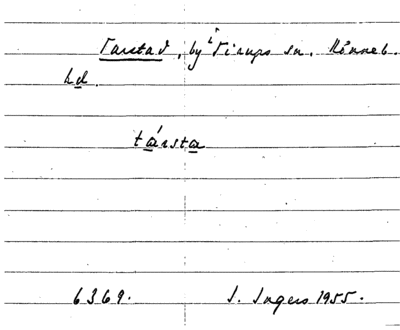 Tarstad, by i Tirups sn. Rönneb.
hd.
tá̱rsta̱
6369. I. Ingers 1955.